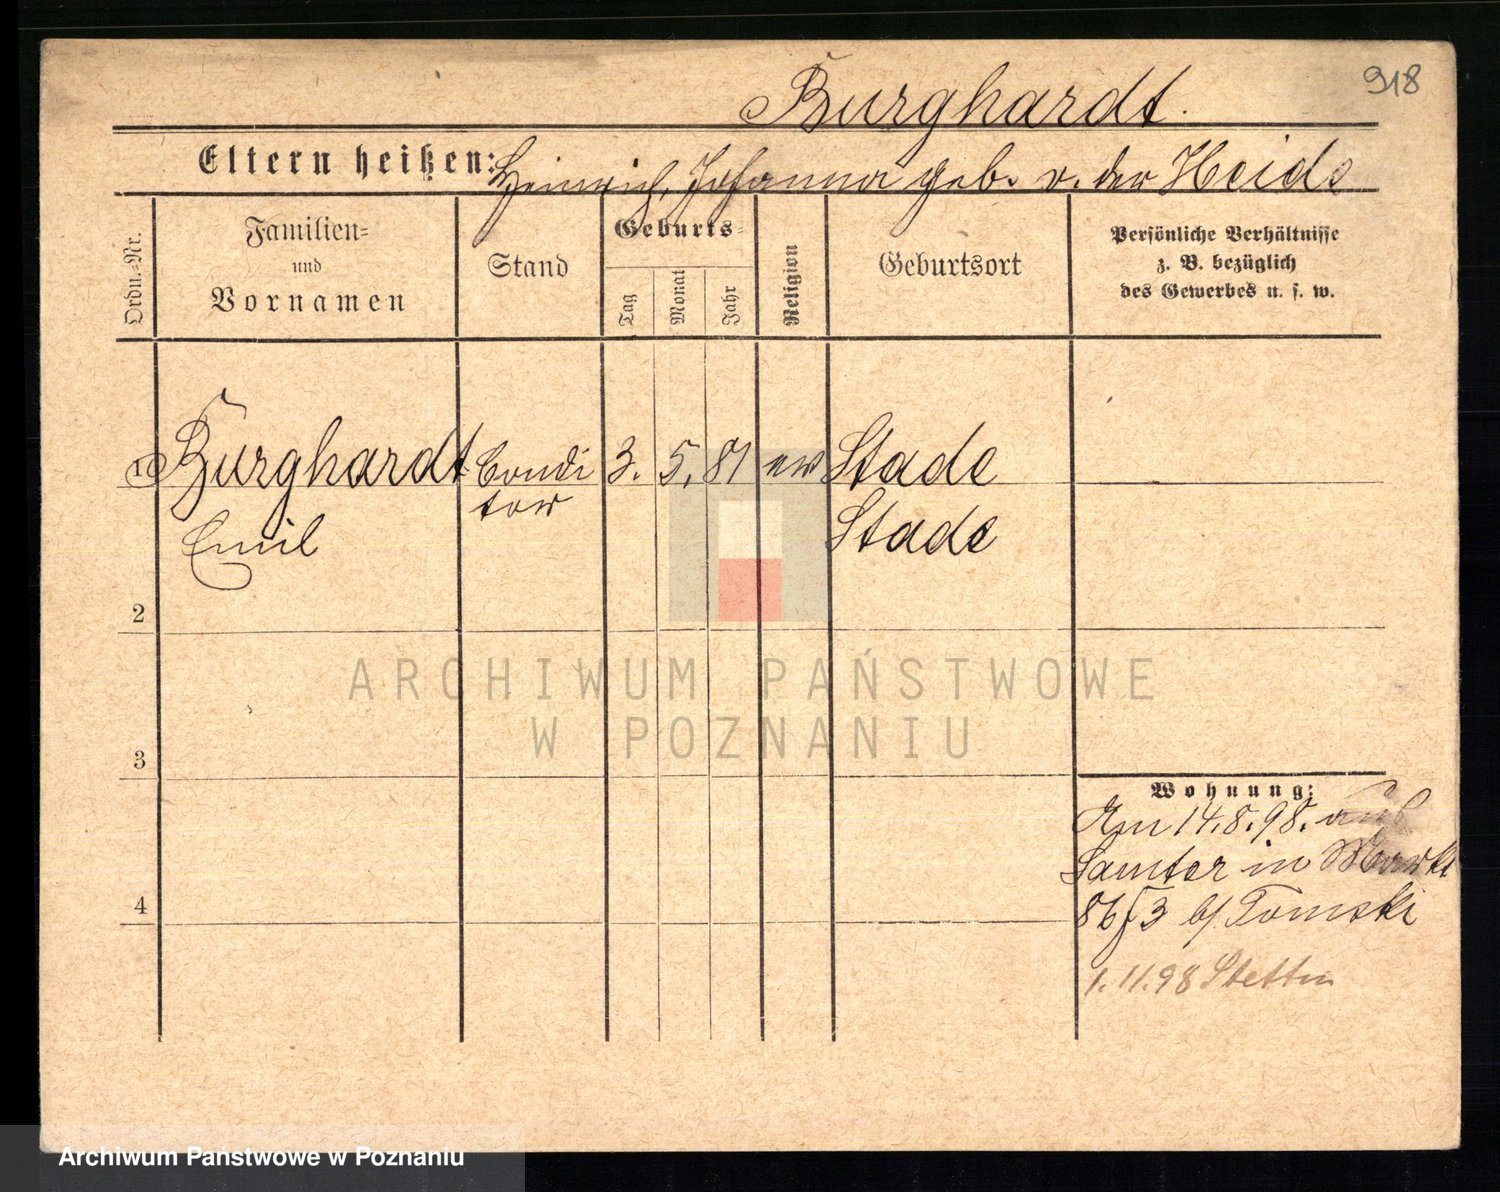 918
Burghardt.
Eltern heißen: Heinrich, Johanna geb. v. der Heide
Ordn.-Nr.
Familien-
und
Vornamen
Stand
Geburts-
Tag
Monat
Jahr
Religion
Geburtsort
Persönliche Verhältnisse
z. B. bezüglich
des Gewerbes u. s. w.
1 Burghardt Condi 3. 5. 81 ev Stade
tor
Emil Stade
2
ARCHIWUM PAŃSTWOWE
W POZNANIU
3
Wohnung:
Am 14.8.98. aus
Samter in Markt
4
86/3 b/ Tomski
1.11.98 Stettin
Archiwum Państwowe w Poznaniu